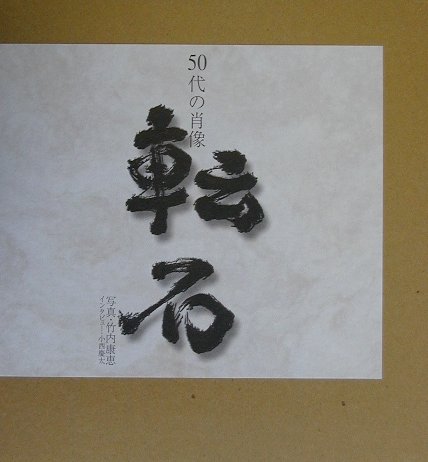 50代の肖像
転石
写真・竹内康恵
インタビュー・小西慶太